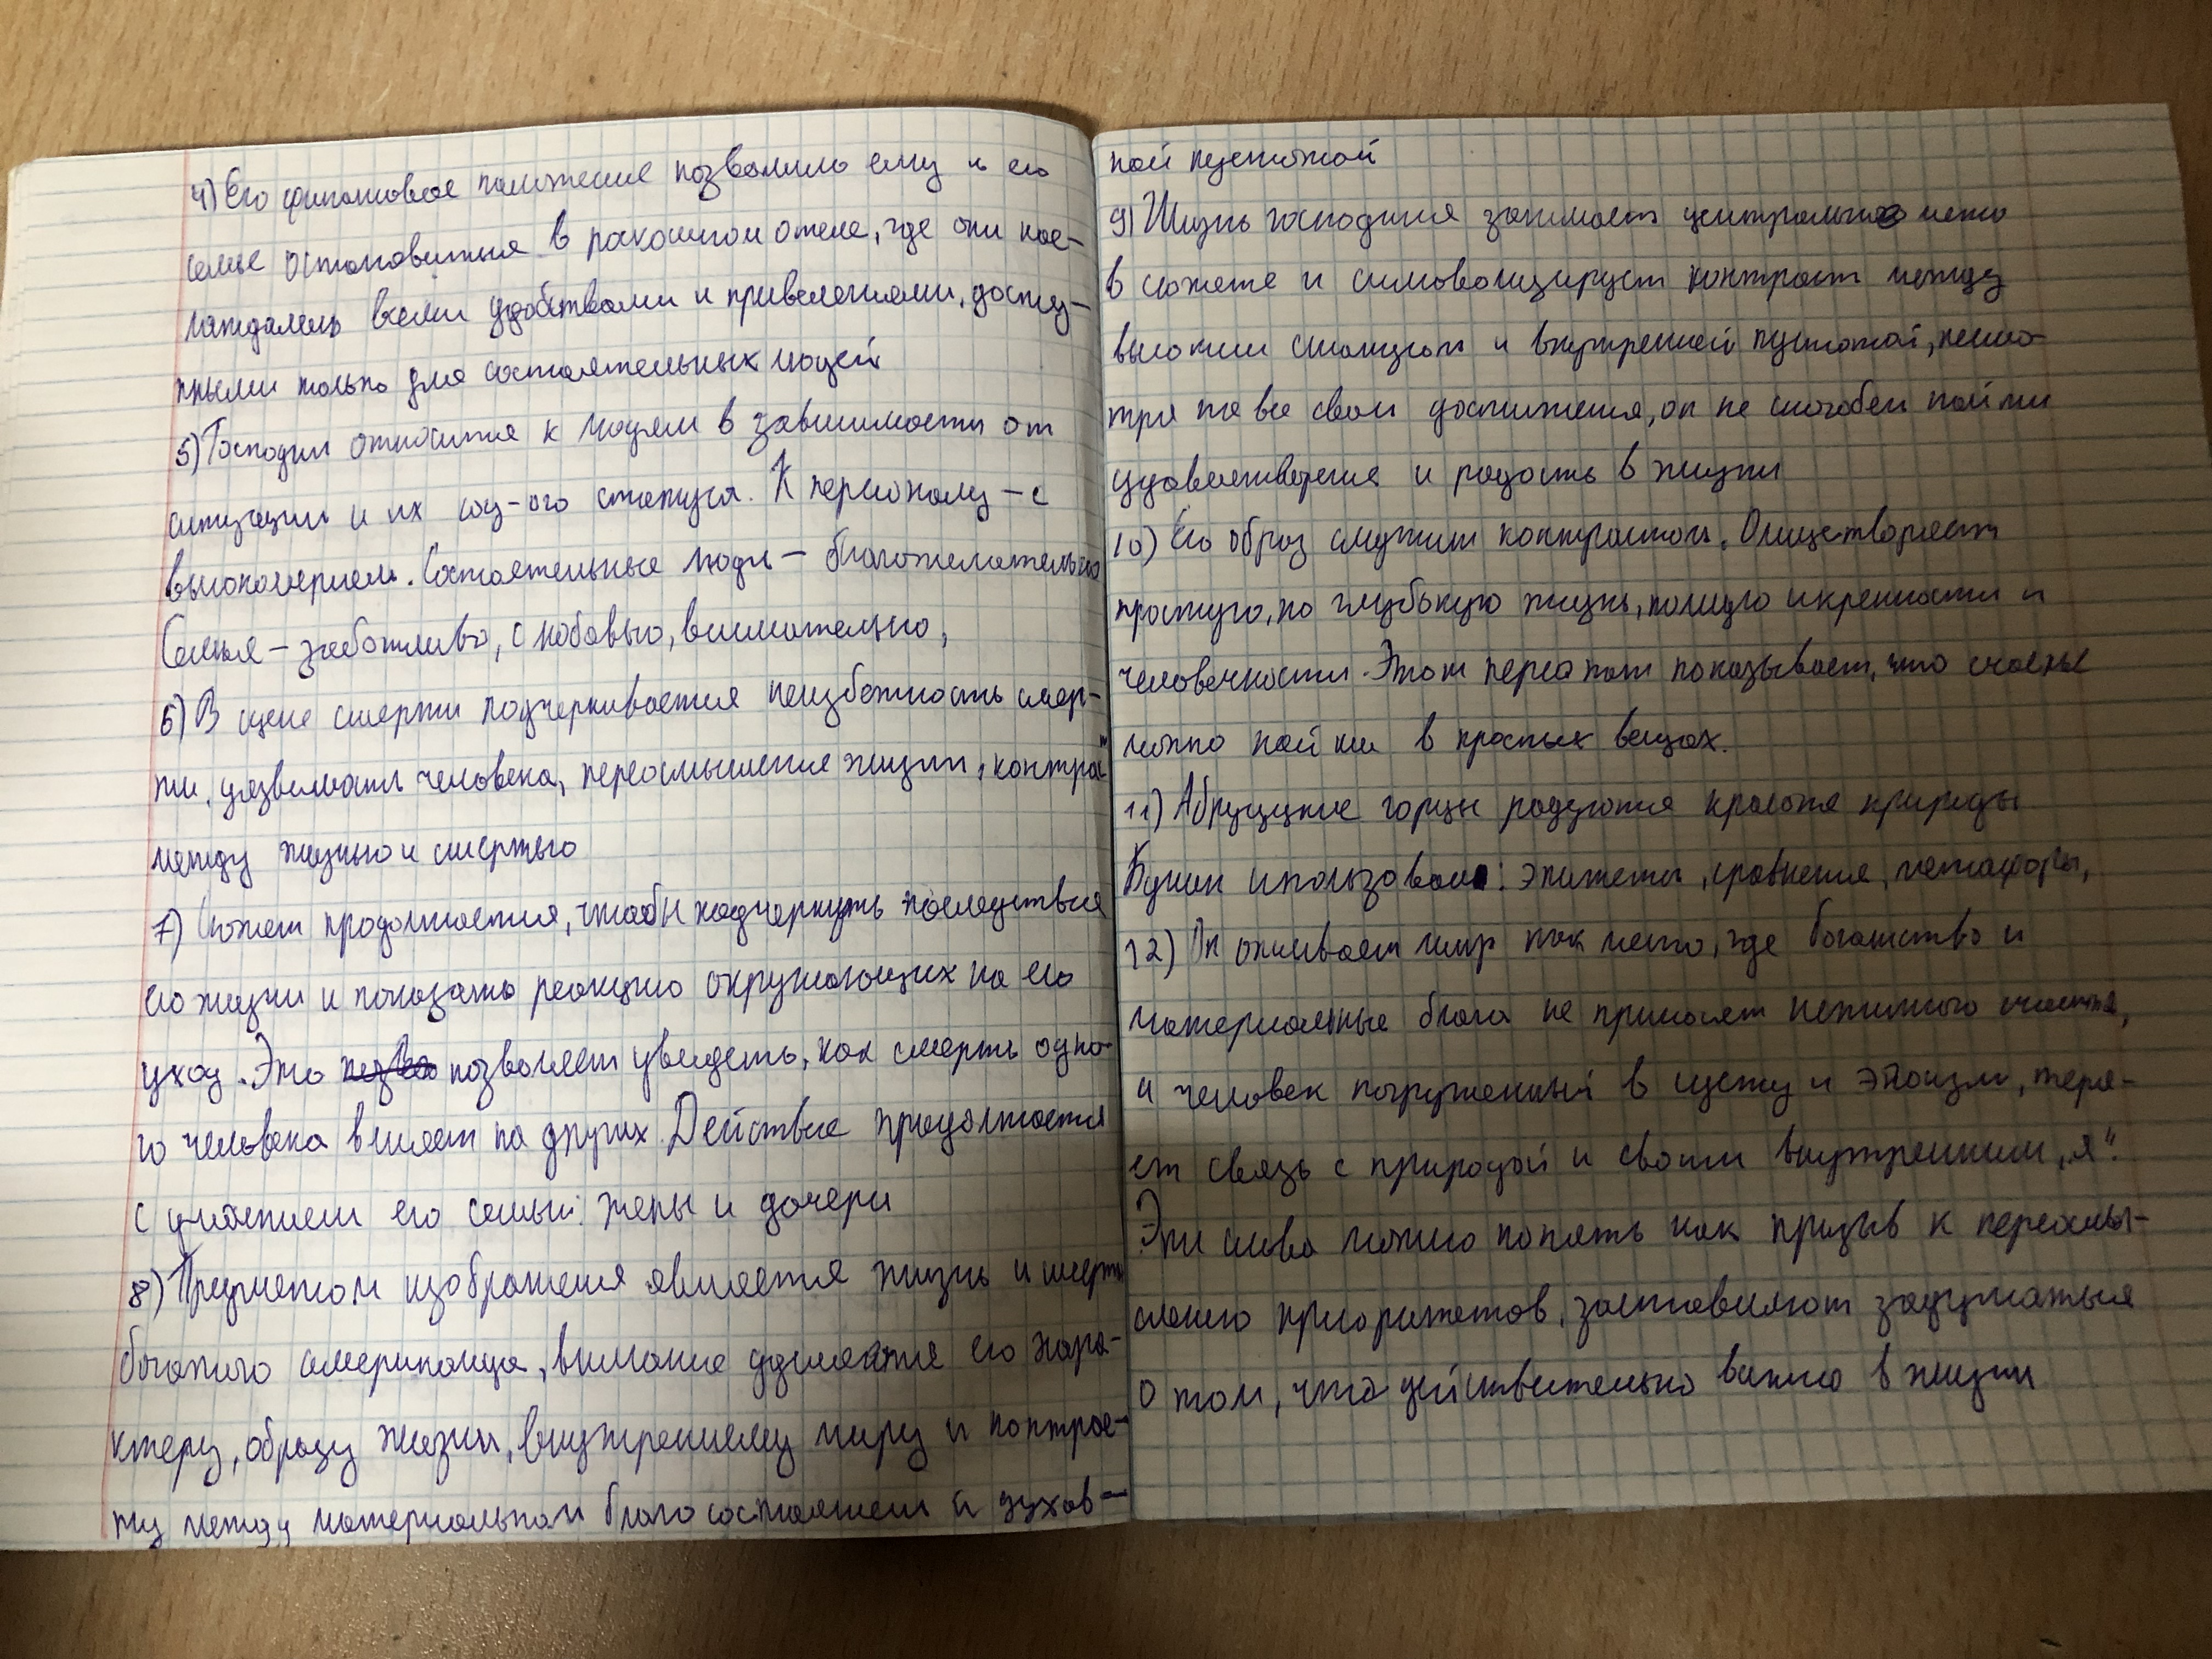 4) Его финансовое положение позволило ему и его
семье остановиться в роскошном отеле, где они нас-
лаждались всеми удобствами и привелегиями, досту-
пными только для состоятельных людей
5) Господин относится к людям в зависимости от
ситуации и их соц-ого статуса. К персоналу – с
высокомерием. Состоятельные люди – благожелательно
Семья – заботливо, с любовью, внимательно,
6) В сцене смерти подчеркивается неизбежность смер-
ти, уязвимость человека, переосмысление жизни, контраст
между жизнью и смертью
7) Сюжет продолжается, чтобы подчеркнуть последствия
его жизни и показать реакцию окружающих на его
уход. Это позволяет увидеть, как смерть одно-
го человека влияет на других. Действие продолжается
с участием его семьи: жены и дочери
8) Предметом изображения является жизнь и смерть
богатого американца, внимание уделяется его хара-
ктеру, образу жизни, внутреннему миру и контрас-
ту между материальном благосостоянием и духов-
ной пустотой
9) Жизнь господина занимает центральное место
в сюжете и символизирует контраст между
высоким статусом и внутренней пустотой, несмо-
тря на все свои достижения, он не способен найти
удовлетворение и радость в жизни
10) Его образ служит контрастом. Олицетворяет
простую, но глубокую жизнь, полную искренности и
человечности. Этот персонаж показывает, что счастье
можно найти в простых вещах.
11) Абруццкие горцы радуются красоте природы
Бунин использовал: эпитеты, сравнения, метафоры,
12) Он описывает мир как место, где богатство и
материальные блага не приносят истинного счастья,
и человек погруженный в суету и эгоизм, теря-
ет связь с природой и своим внутренним „я".
Эти слова можно понять как призыв к переосмы-
слению приоритетов, заставляют задуматься
о том, что действительно важно в жизни